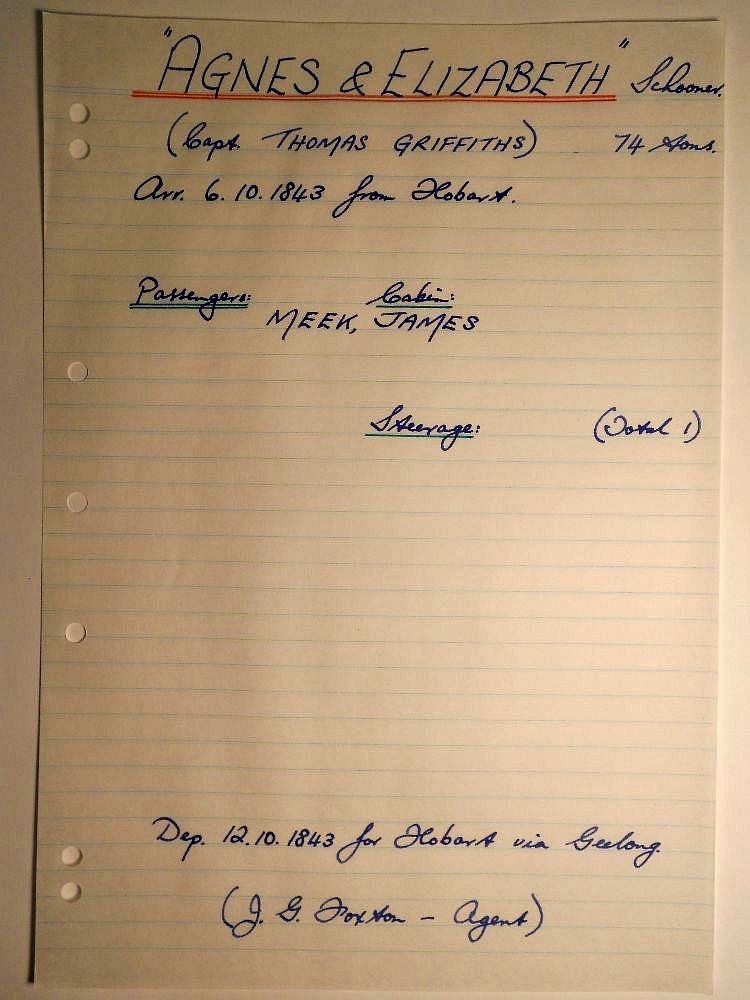 "AGNES & ELIZABETH" Schooner.
(Capt. THOMAS GRIFFITHS) 74 tons.
Arr. 6.10.1843 from Hobart.
Passengers: Cabin:
MEEK, JAMES
Steerage: (Total 1)
Dep. 12.10.1843 for Hobart via Geelong.
(J. G. Foxton - Agent)